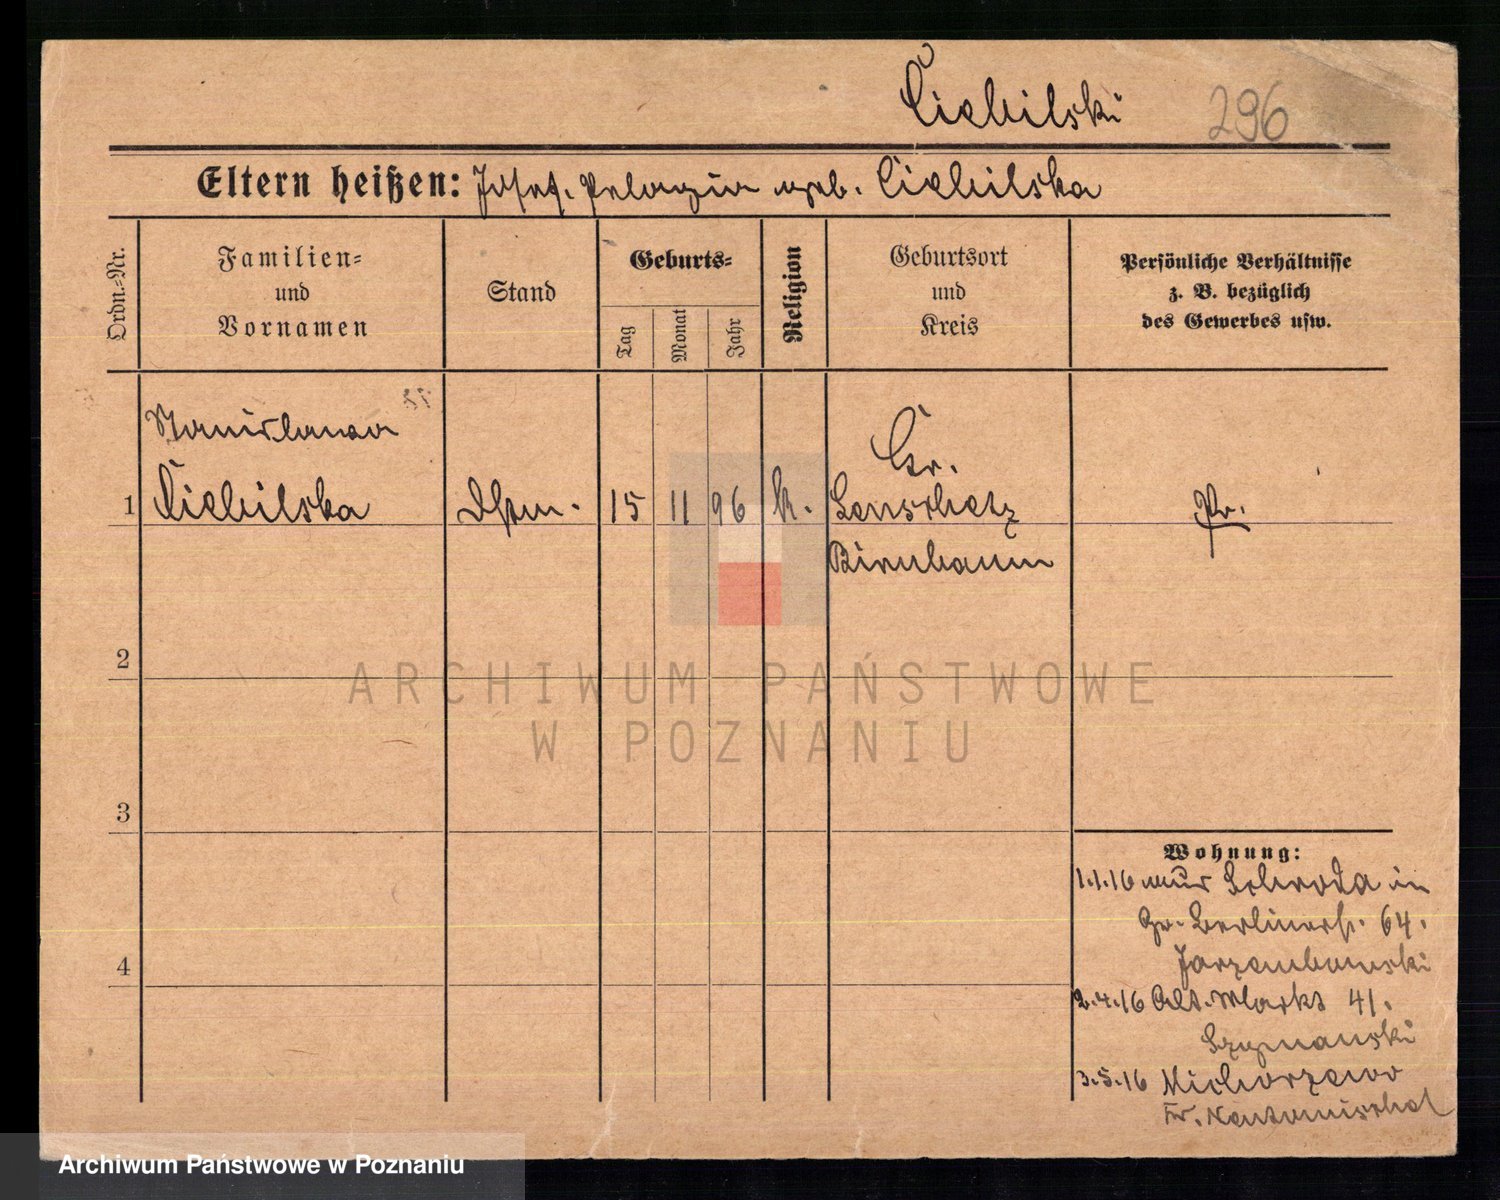 Ciebilski 296
Eltern heißen: Josef. Pelagia geb. Ciebilska
Ordn.-Nr.
Familien-
und
Vornamen
Stand
Geburts-
Tag
Monat
Jahr
Religion
Geburtsort
und
Kreis
Persönliche Verhältnisse
z. B. bezüglich
des Gewerbes usw.
Stanislawa
Gr.
1 Ciebilska Dstm. 15 11 96 k. Lenschetz Pr.
Birnbaum
2
3
4
Wohnung:
1.1.16 aus Schroda in
Gr. Berlinerst. 64.
Jarzembowski
2.4.16 Alt. Markt 41.
Szymanski
3.5.16 Michorzewo
Kr. Neutomischel
ARCHIWUM PAŃSTWOWE
W POZNANIU
Archiwum Państwowe w Poznaniu